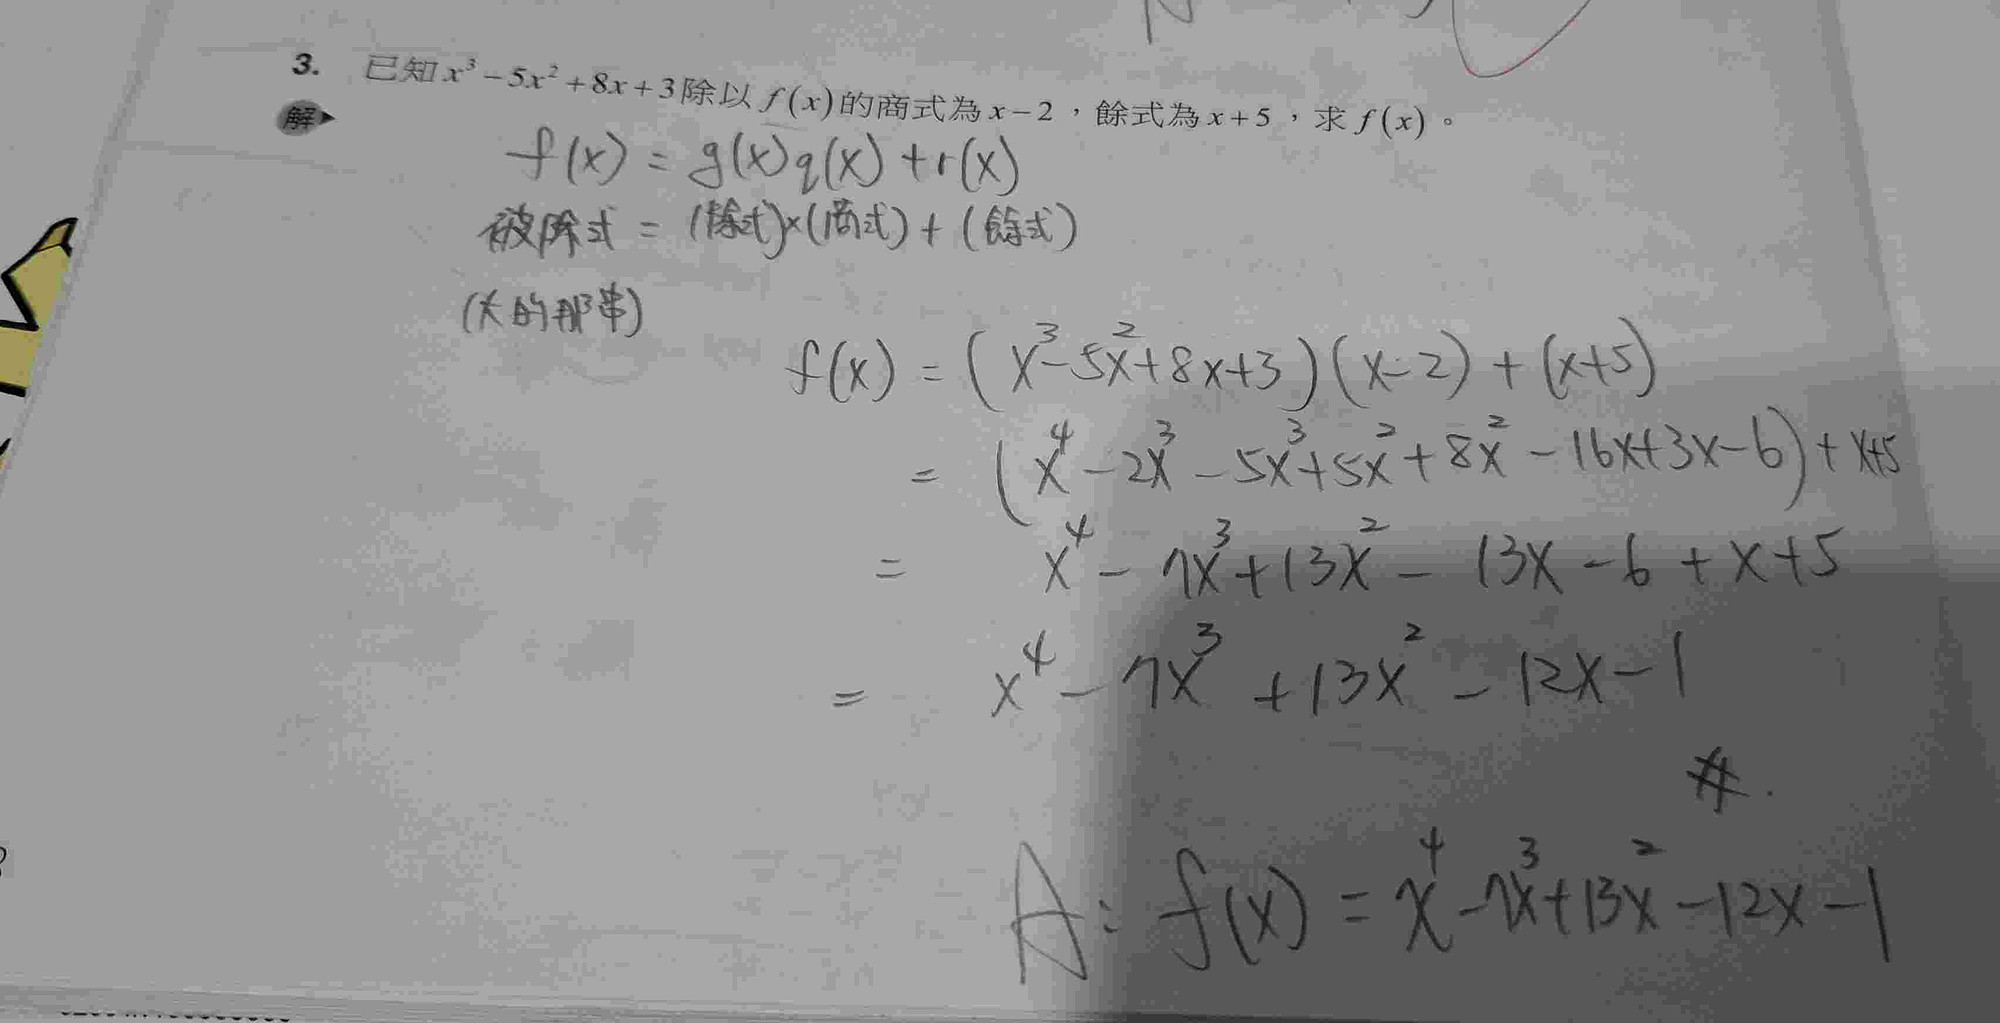 3. 已知 x³ − 5x² + 8x + 3 除以 f(x) 的商式為 x − 2，餘式為 x + 5，求 f(x)。
解
f(x) = g(x)q(x) + r(x)
被除式 = (除式)×(商式) + (餘式)
(大的那串)
f(x) = (x³ − 5x² + 8x + 3)(x − 2) + (x + 5)
= (x⁴ − 2x³ − 5x³ + 5x² + 8x² − 16x + 3x − 6) + x + 5
= x⁴ − 7x³ + 13x² − 13x − 6 + x + 5
= x⁴ − 7x³ + 13x² − 12x − 1
#.
A: f(x) = x⁴ − 7x³ + 13x² − 12x − 1